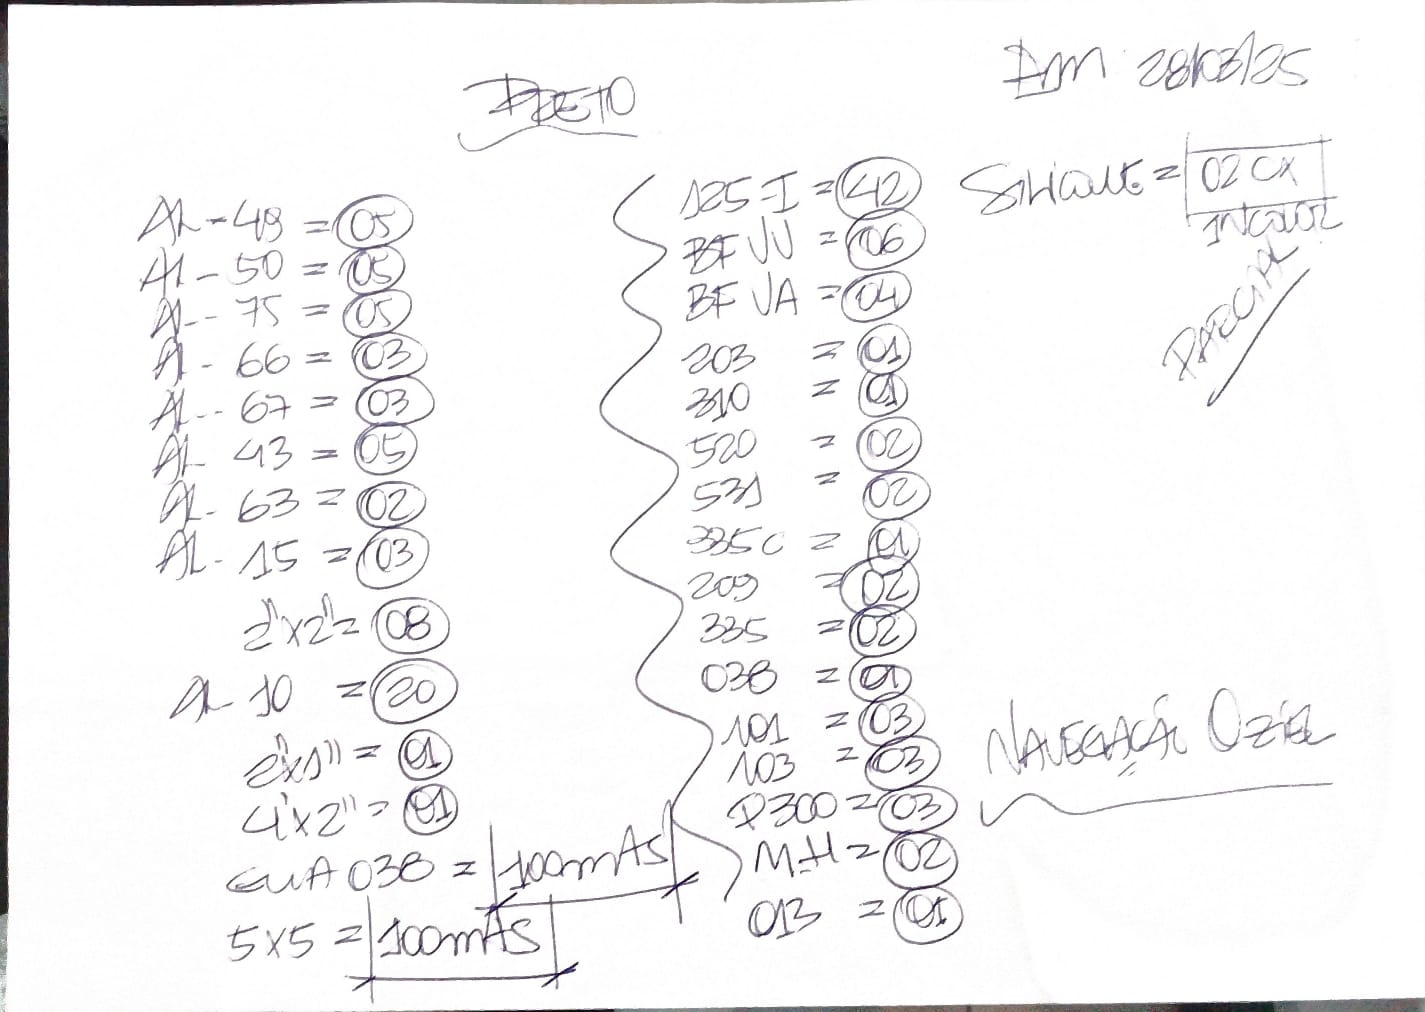 PRETO
EM 28/03/25
AL-49 = 05
AL-50 = 05
AL-75 = 05
AL-66 = 03
AL-67 = 03
AL-43 = 05
AL-63 = 02
AL-15 = 03
2"x2" = 08
AL 10 = 20
2"x1" = 01
4"x2" = 01
GUIA 038 = 100mAS
5x5 = 100mAS
125-I = 42
BF VV = 06
BF VA = 04
203 = 01
310 = 01
520 = 02
531 = 02
335C = 01
209 = 02
335 = 02
038 = 01
101 = 03
103 = 03
P300 = 03
M-H = 02
013 = 01
= 02 CX
INCOLOR
PARCIAL
NAVEGAÇÃO OZIEL